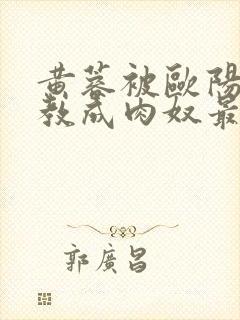 黄蓉被歐陽
教成肉奴最
郭廣昌